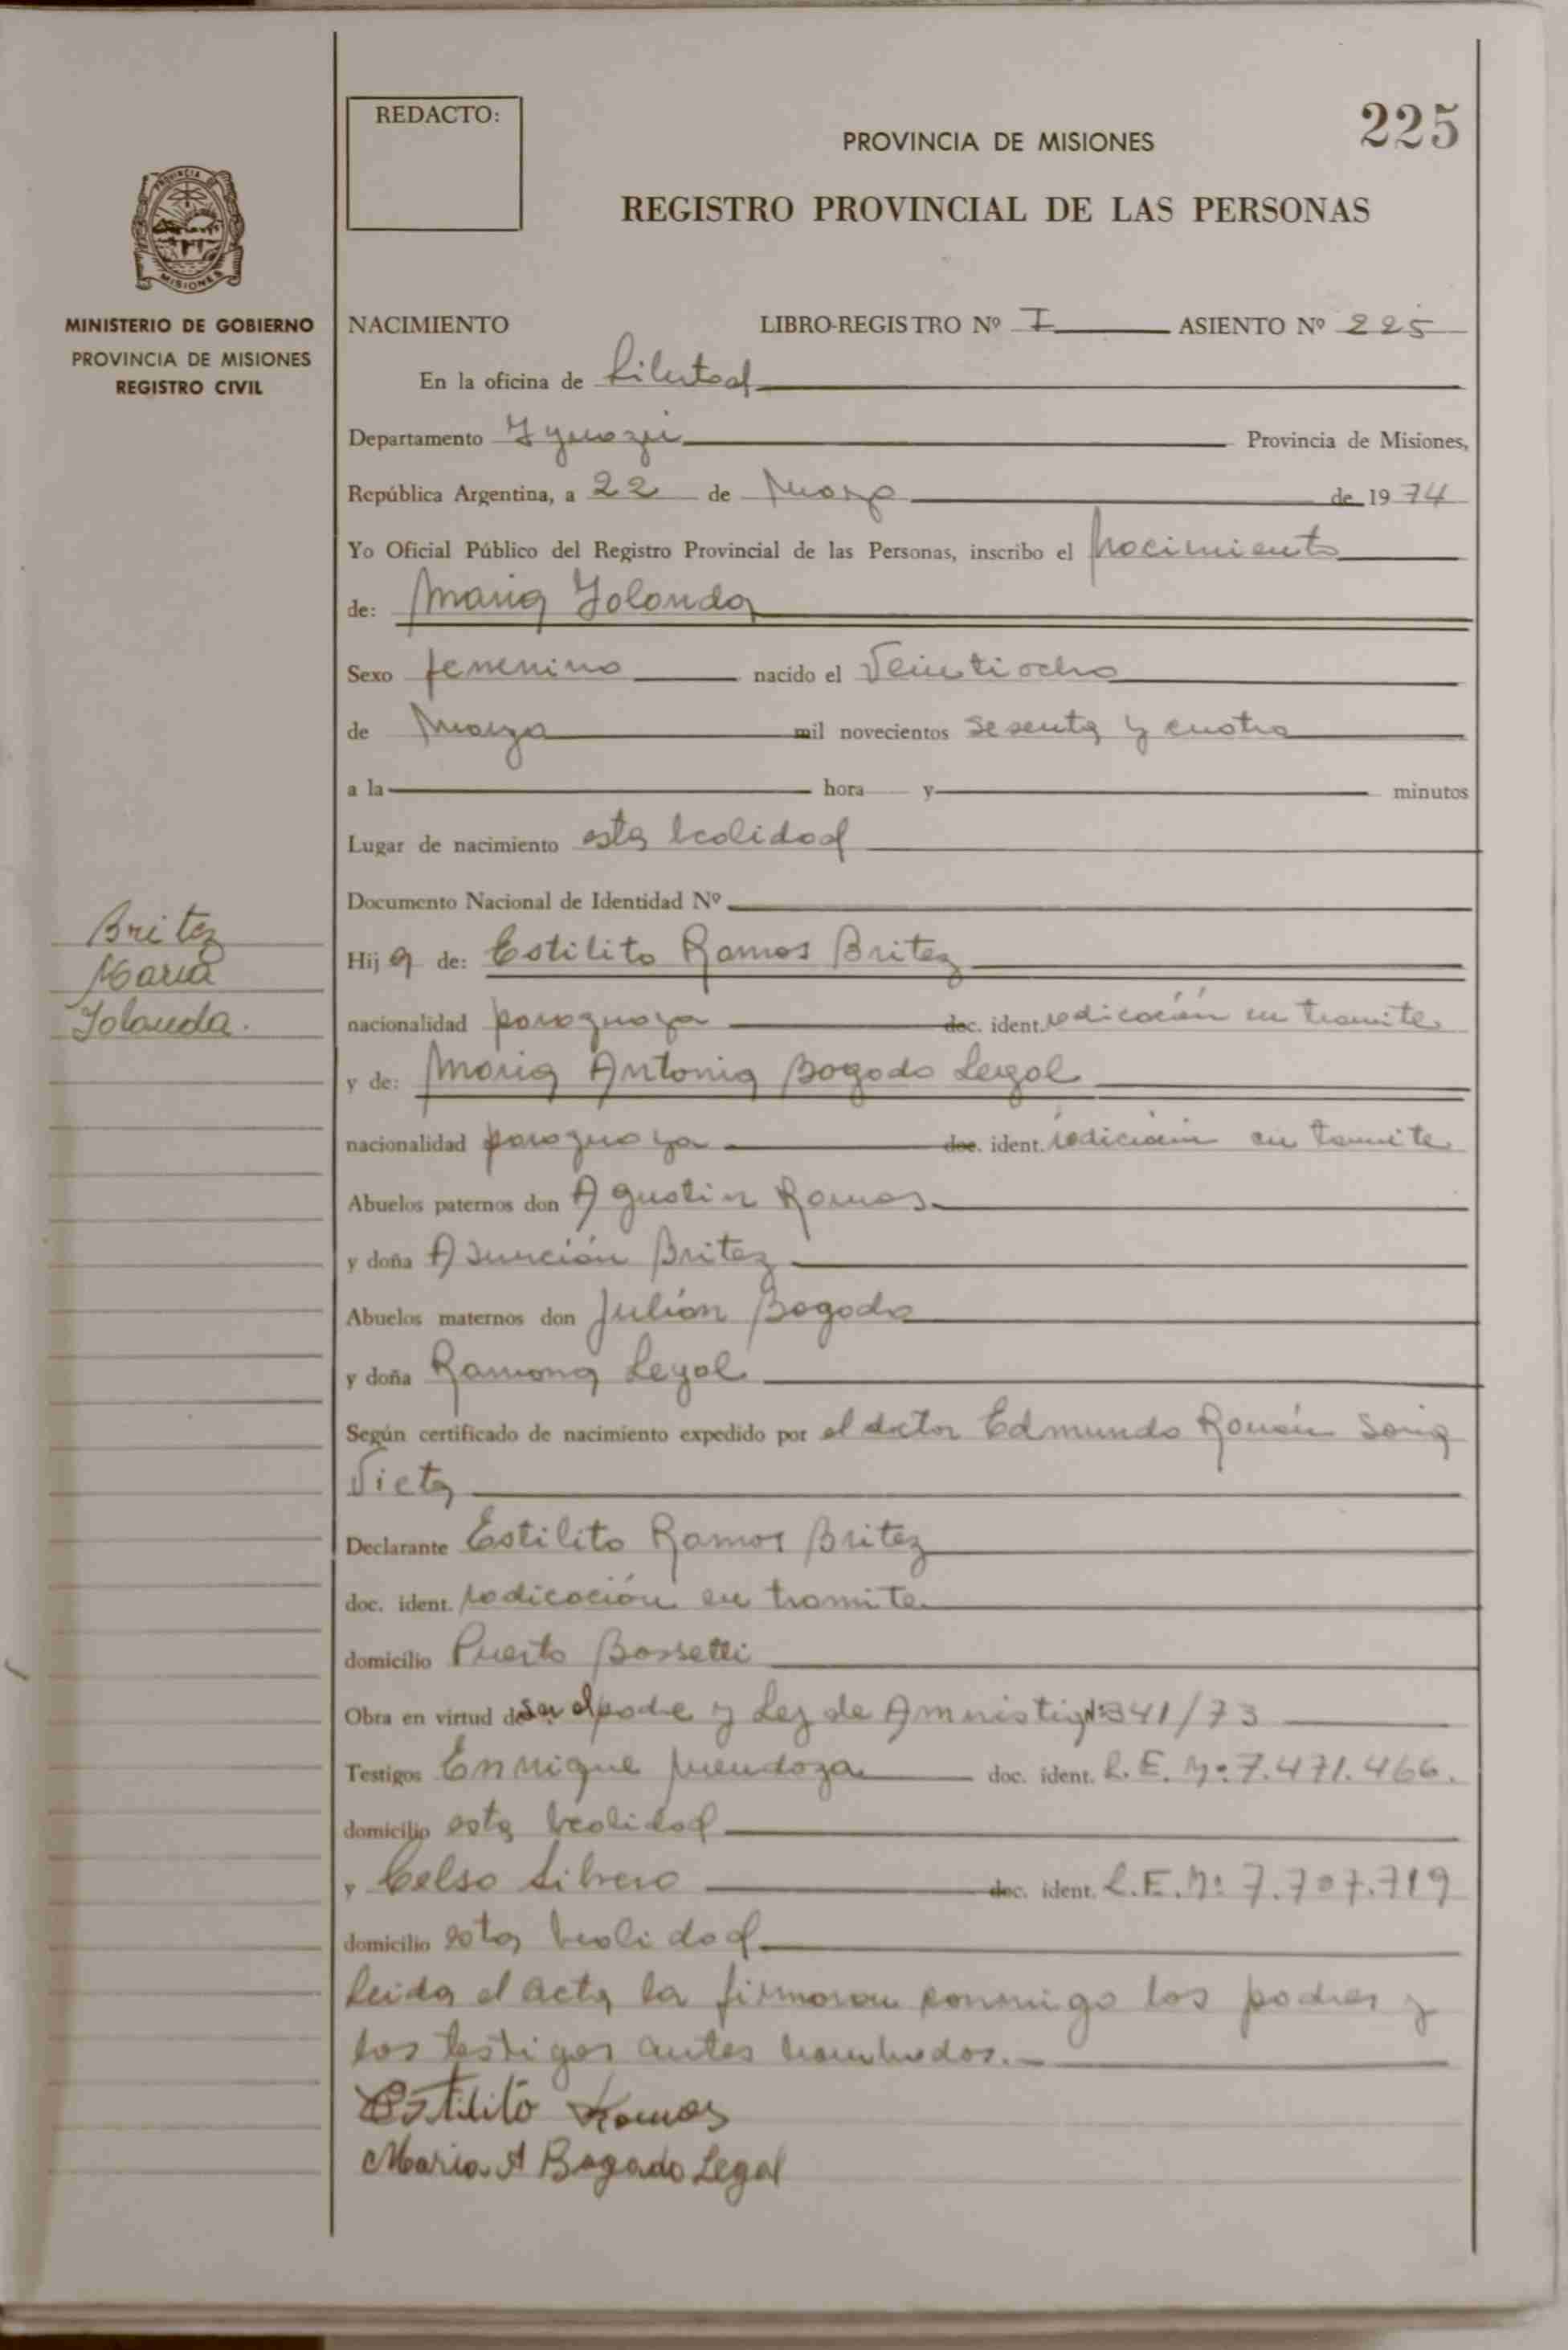 REDACTO:
225
PROVINCIA DE MISIONES
REGISTRO PROVINCIAL DE LAS PERSONAS
PROVINCIA DE
MISIONES
MINISTERIO DE GOBIERNO
PROVINCIA DE MISIONES
REGISTRO CIVIL
NACIMIENTO LIBRO-REGISTRO Nº I ASIENTO Nº 225
En la oficina de Libertad
Departamento Yguazú Provincia de Misiones,
República Argentina, a 22 de Marzo de 1974
Yo Oficial Público del Registro Provincial de las Personas, inscribo el nacimiento
de: Maria Yolanda
Sexo femenino nacido el Veintiocho
de Marzo mil novecientos sesenta y cuatro
a la hora y minutos
Lugar de nacimiento esta localidad
Documento Nacional de Identidad Nº
Britez
Maria
Yolanda.
Hija de: Estilito Ramos Britez
nacionalidad paraguaya doc. ident. radicación en tramite
y de: Maria Antonia Bogado Legal
nacionalidad paraguaya doc. ident. radicación en tramite
Abuelos paternos don Agustin Ramos
y doña Asunción Britez
Abuelos maternos don Julián Bogado
y doña Ramona Legal
Según certificado de nacimiento expedido por el doctor Edmundo Román Soria
Vieta
Declarante Estilito Ramos Britez
doc. ident. radicación en tramite
domicilio Puerto Bossetti
Obra en virtud de ser el padre y Ley de Amnistia Nº 341/73
Testigos Enrique Mendoza doc. ident. L.E. Nº 7.471.466.
domicilio esta localidad
y Celso Librero doc. ident. L.E. Nº 7.707.719
domicilio esta localidad
Leida el acta la firmaron conmigo los padres y
los testigos antes nombrados.
Estilito Ramos
Maria A Bogado Legal